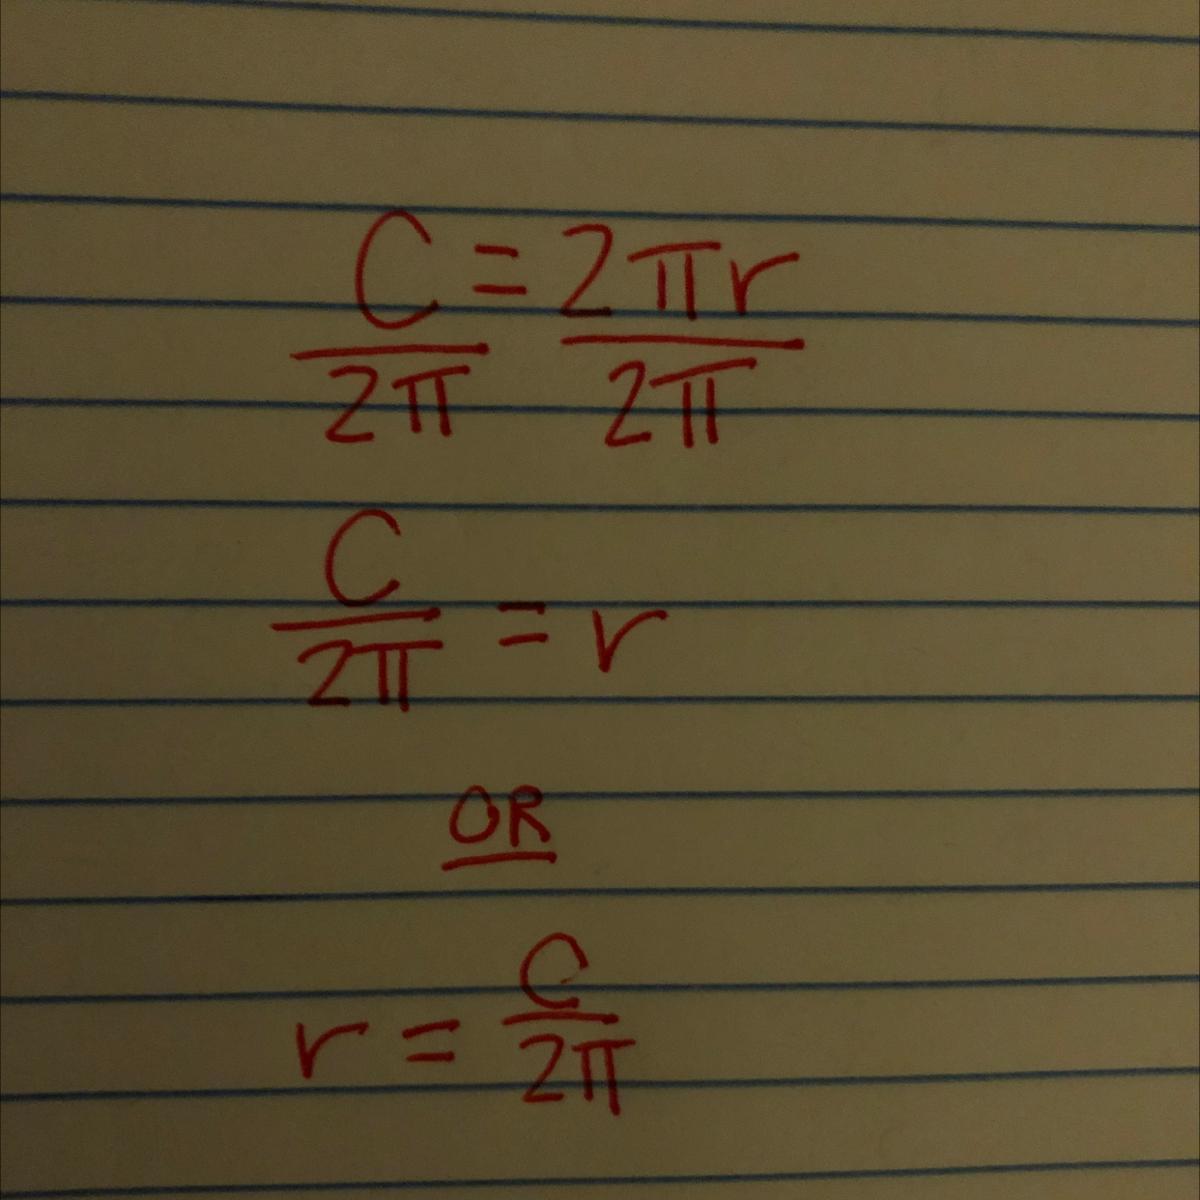 C = 2πr
2π 2π
C
2π = r
OR
r = C
2π